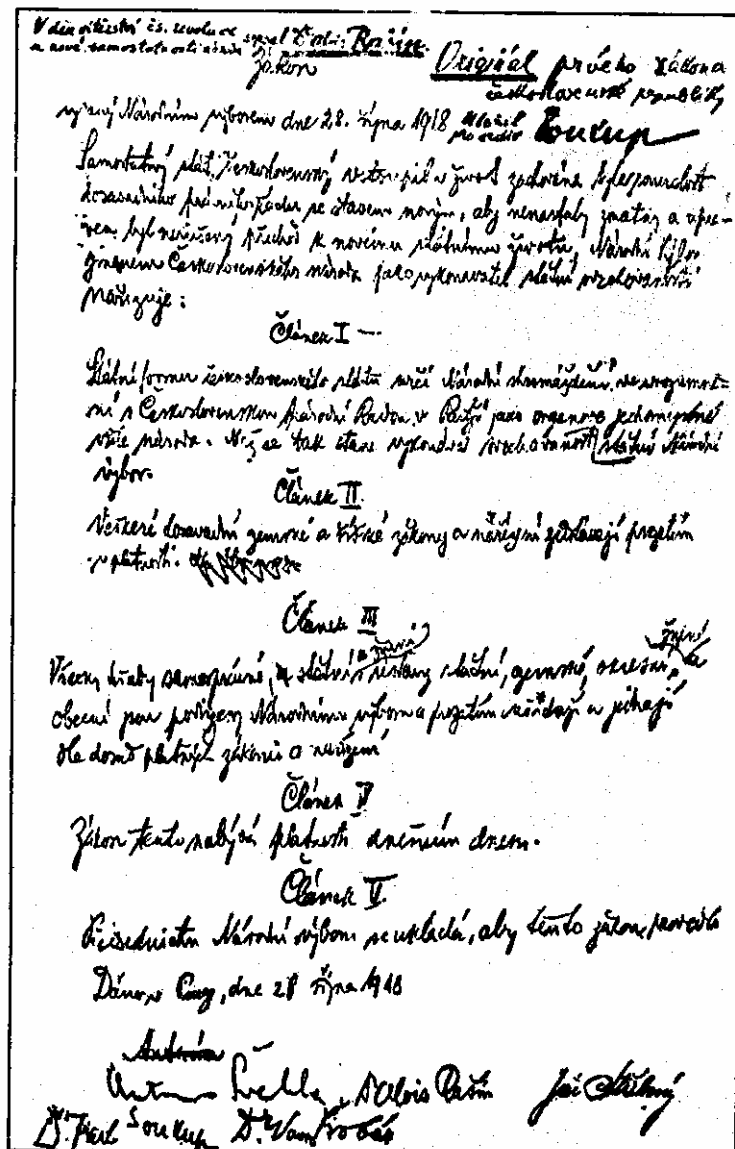 V den vítězství čs. revoluce spsal Dr Alois Rašín.
a nové samostatnosti
Zákon
Originál prvého zákona
československé republiky
vydaný Národním výborem dne 28. října 1918
Soukup
Samostatný stát Československý vstoupil v život
dosavadního právního řádu se stavem novým, aby nenastaly zmatky a upra-
ven byl nerušený přechod k novému státnímu životu, Národní Výbor
jménem Československého národa jako vykonavatel státní svrchovanosti
nařizuje:
Článek I —
Státní formu československého státu určí Národní shromáždění ve srozumě-
ní s Československou Národní Radou v Paříži jako organové jednomyslné
vůle národa. Než se tak stane vykonává svrchovanost státní Národní
výbor.
Článek II.
Veškeré dosavadní zemské a říšské zákony a nařízení zůstávají prozatím
v platnosti.
Článek III
Všecky úřady samosprávné, státní a župní, ústavy státní, zemské, okresní, a
župní
obecní jsou podřízeny Národnímu výboru a prozatím úřadují a jednají
dle dosud platných zákonů a nařízení
Článek IV
Zákon tento nabývá platnosti dnešním dnem.
Článek V.
Předsednictvu Národní výboru se ukládá, aby tento zákon provedlo
Dáno v Praze, dne 28 října 1918
Antonín
Antonín Švehla, Dr Alois Rašín Jiří Stříbrný
Dr. Frant Soukup Dr. Vavro Šrobár